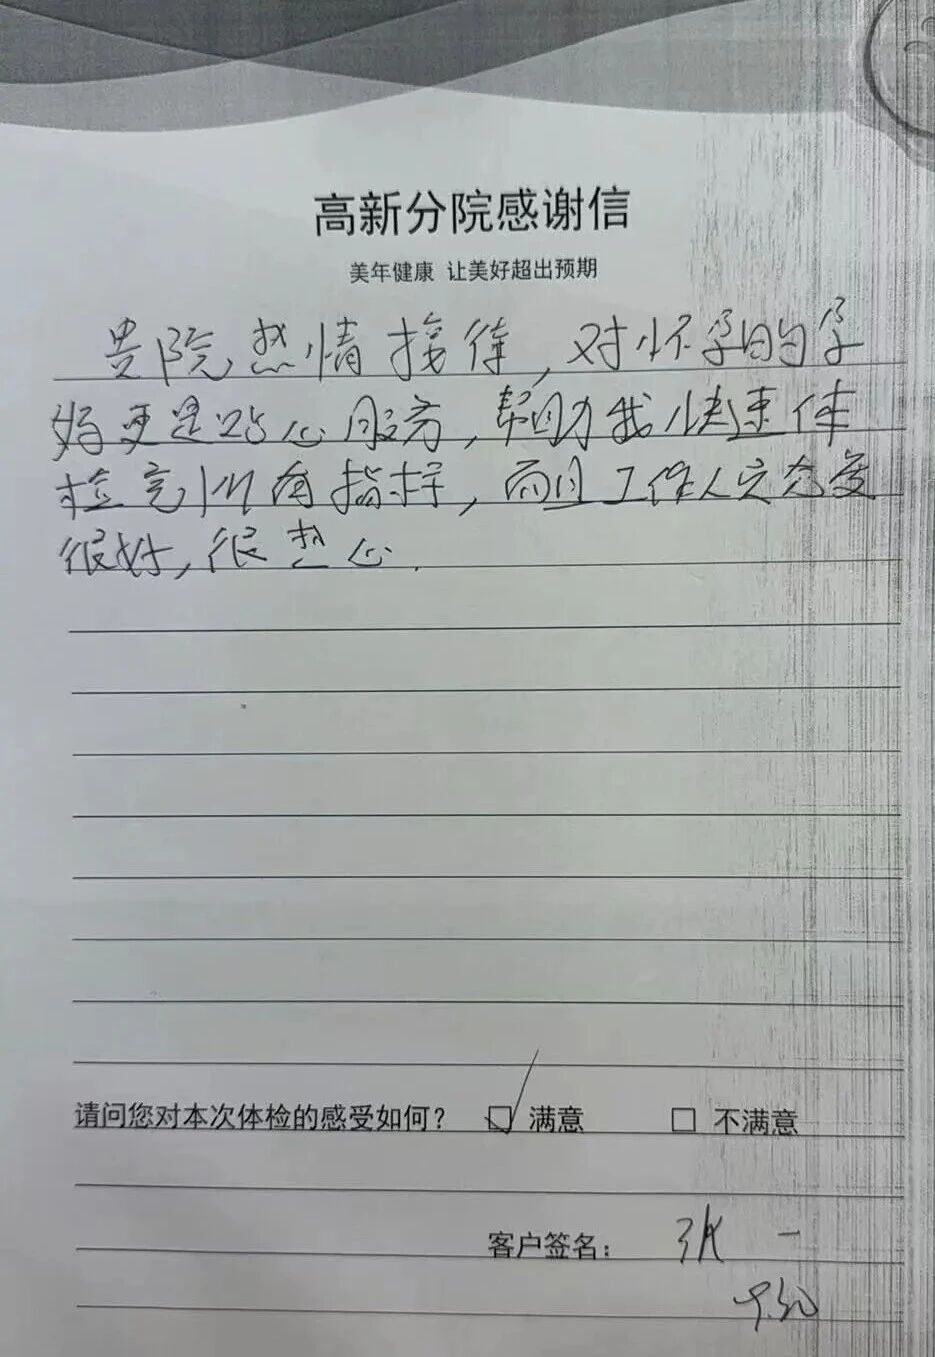 高新分院感谢信
美年健康 让美好超出预期
贵院热情接待,对怀孕的孕
妈更是贴心服务,帮助我快速体
检完所有指标,而且工作人员态度
很好,很热心.
请问您对本次体检的感受如何? ☑ 满意 □ 不满意
客户签名: 张一
9.30